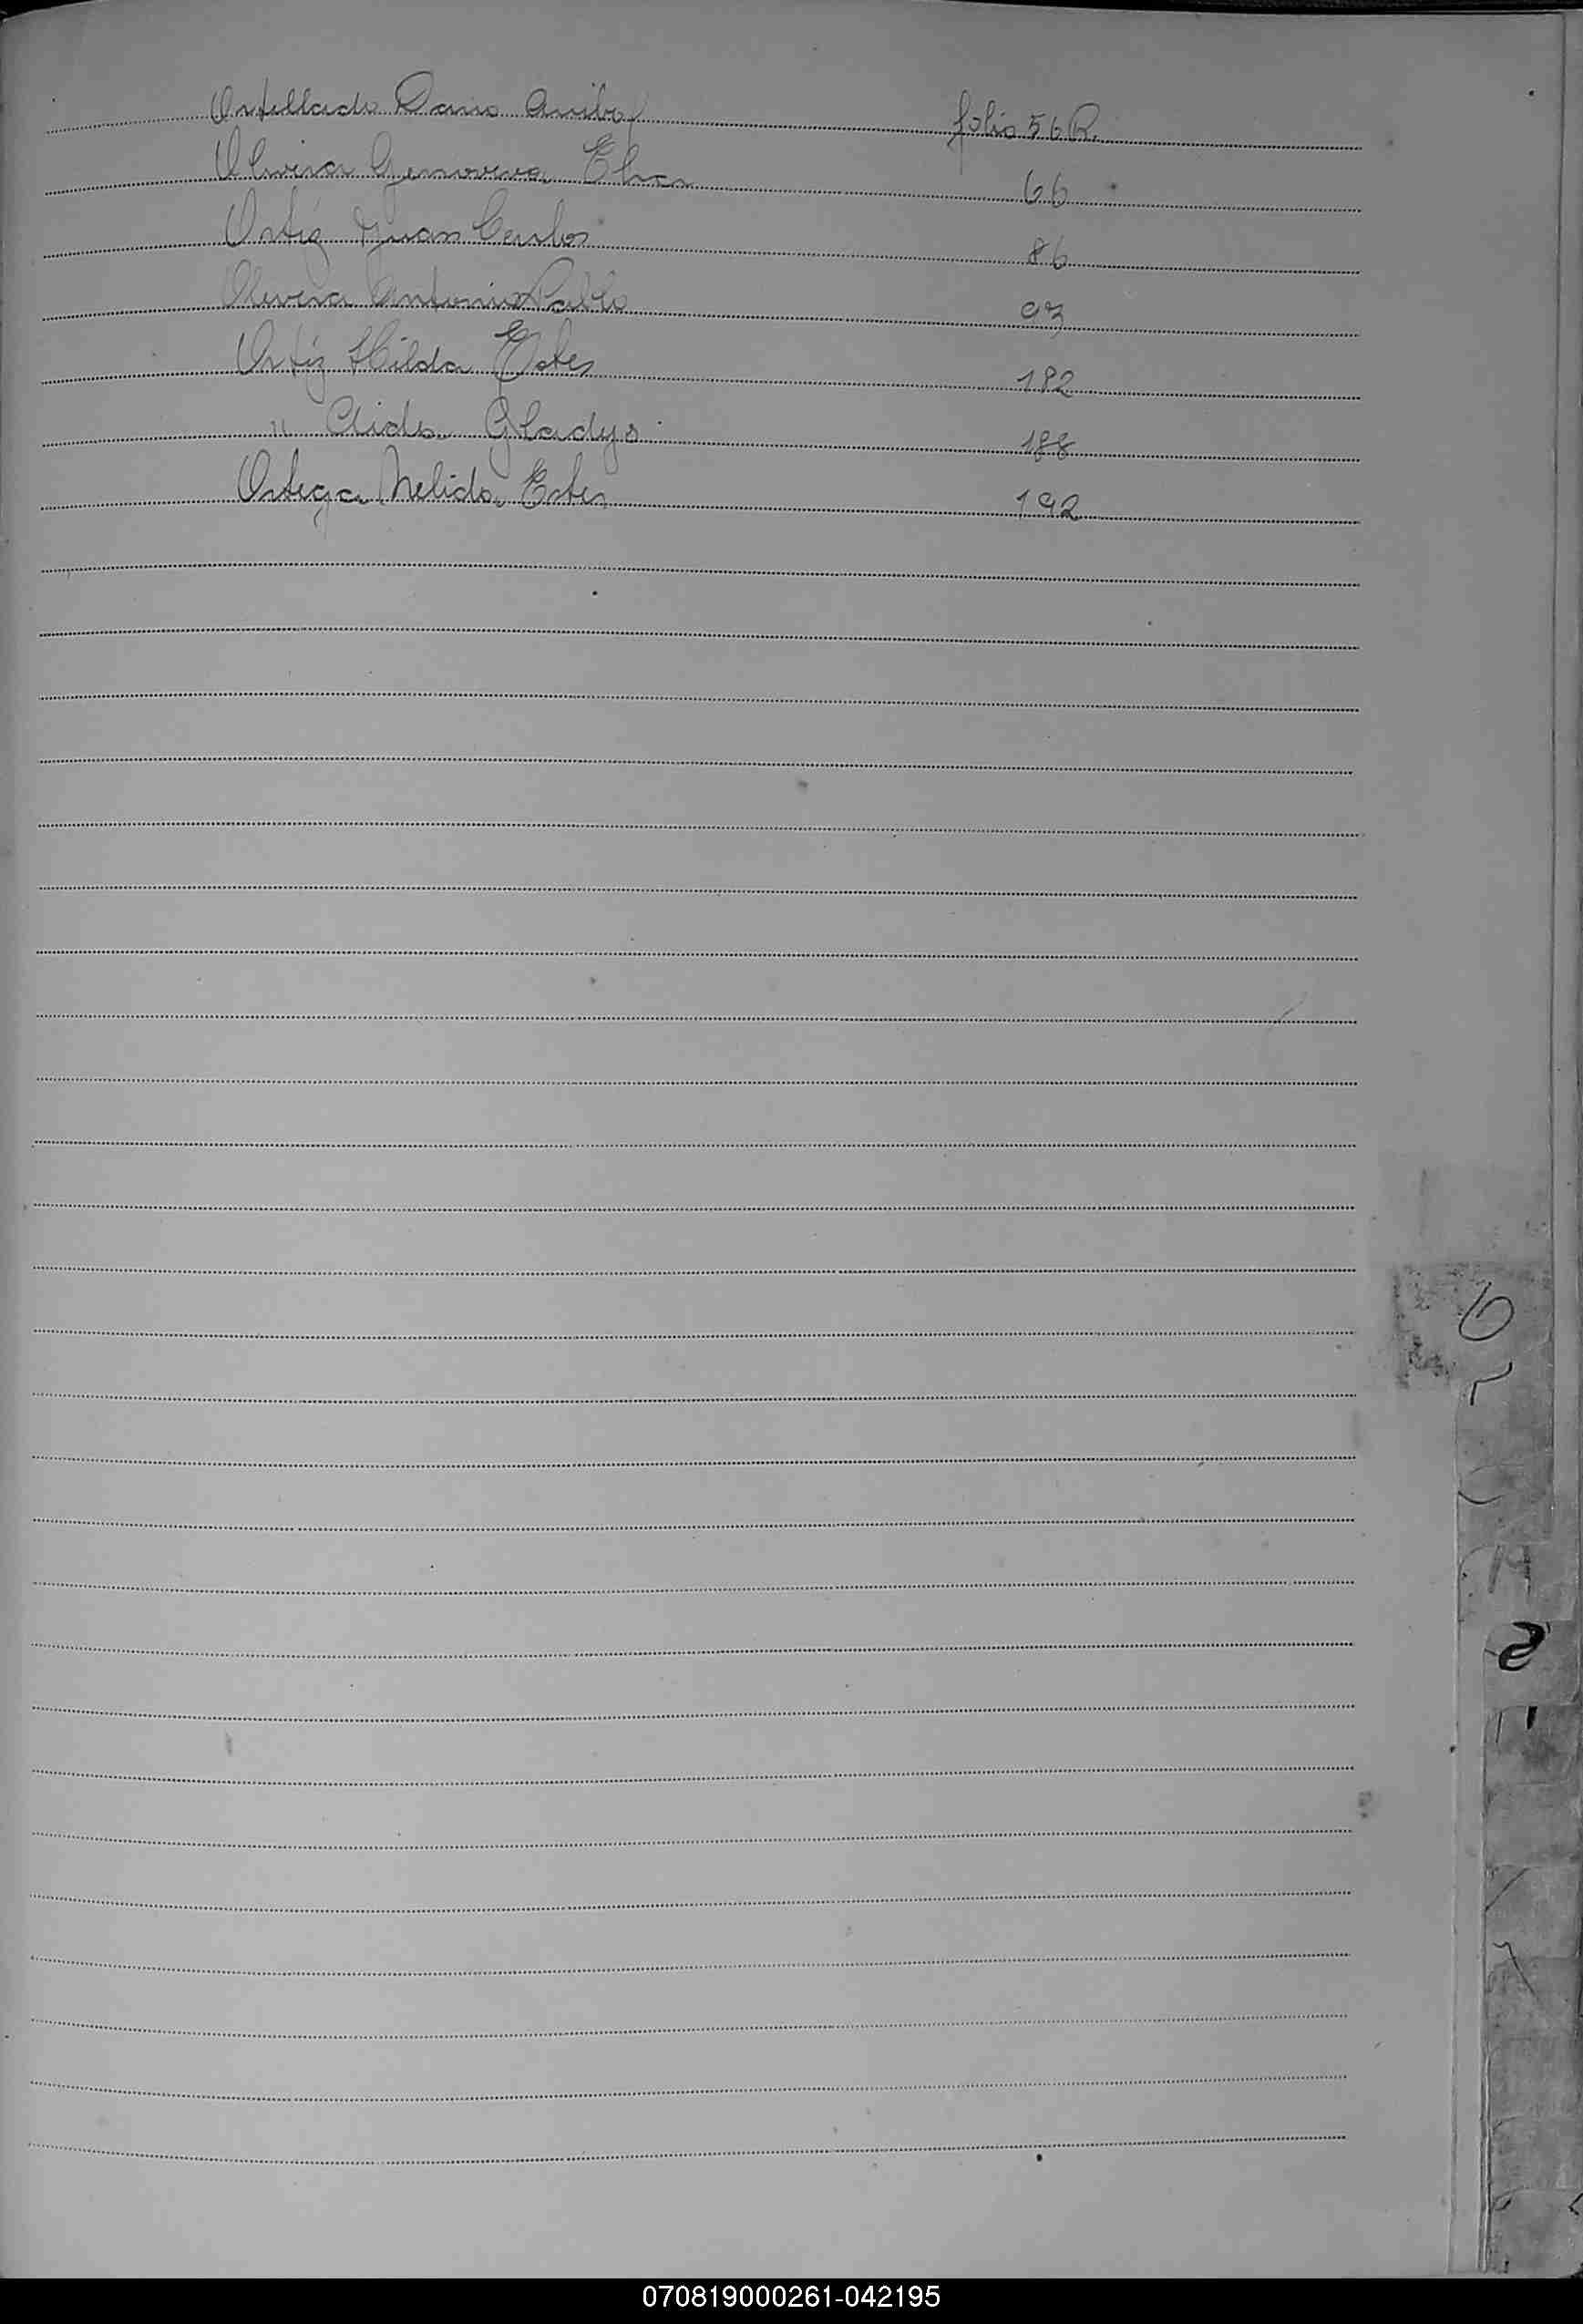 Ortellado Dario Anibal folio 56 R.
Olivera Genoveva Elsa 66
Ortiz Juan Carlos 86
Olivera Antonio Pablo 93
Ortiz Hilda Ester 182
" Elida Gladys 188
Ortega Nelida Ester 192
O
070819000261-042195